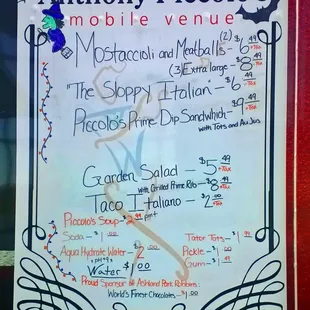 Anthony Piccolo's
mobile venue
Mostaccioli and Meatballs (2) - $6.49 +Tax
(3) Extra large - $8.49 +Tax
"The Sloppy Italian" - $6.49 +Tax
Piccolo's Prime Dip Sandwhich - $9.49 +Tax
with Tots and Au Jus
Garden Salad - $5.49 +Tax
with Grilled Prime Rib - $8.49 +Tax
Taco Italiano - $2.00 +Tax
Piccolo's Soup - $2.99 pint
Soda - $1.00
Tator Tots - $1.49
Aqua Hydrate Water - $2.00
Pickle - $1.00
Water $1.00
Gum - $1.49
Proud Sponsor @ Ashland Park Robbins:
World's Finest Chocolates - $1.00